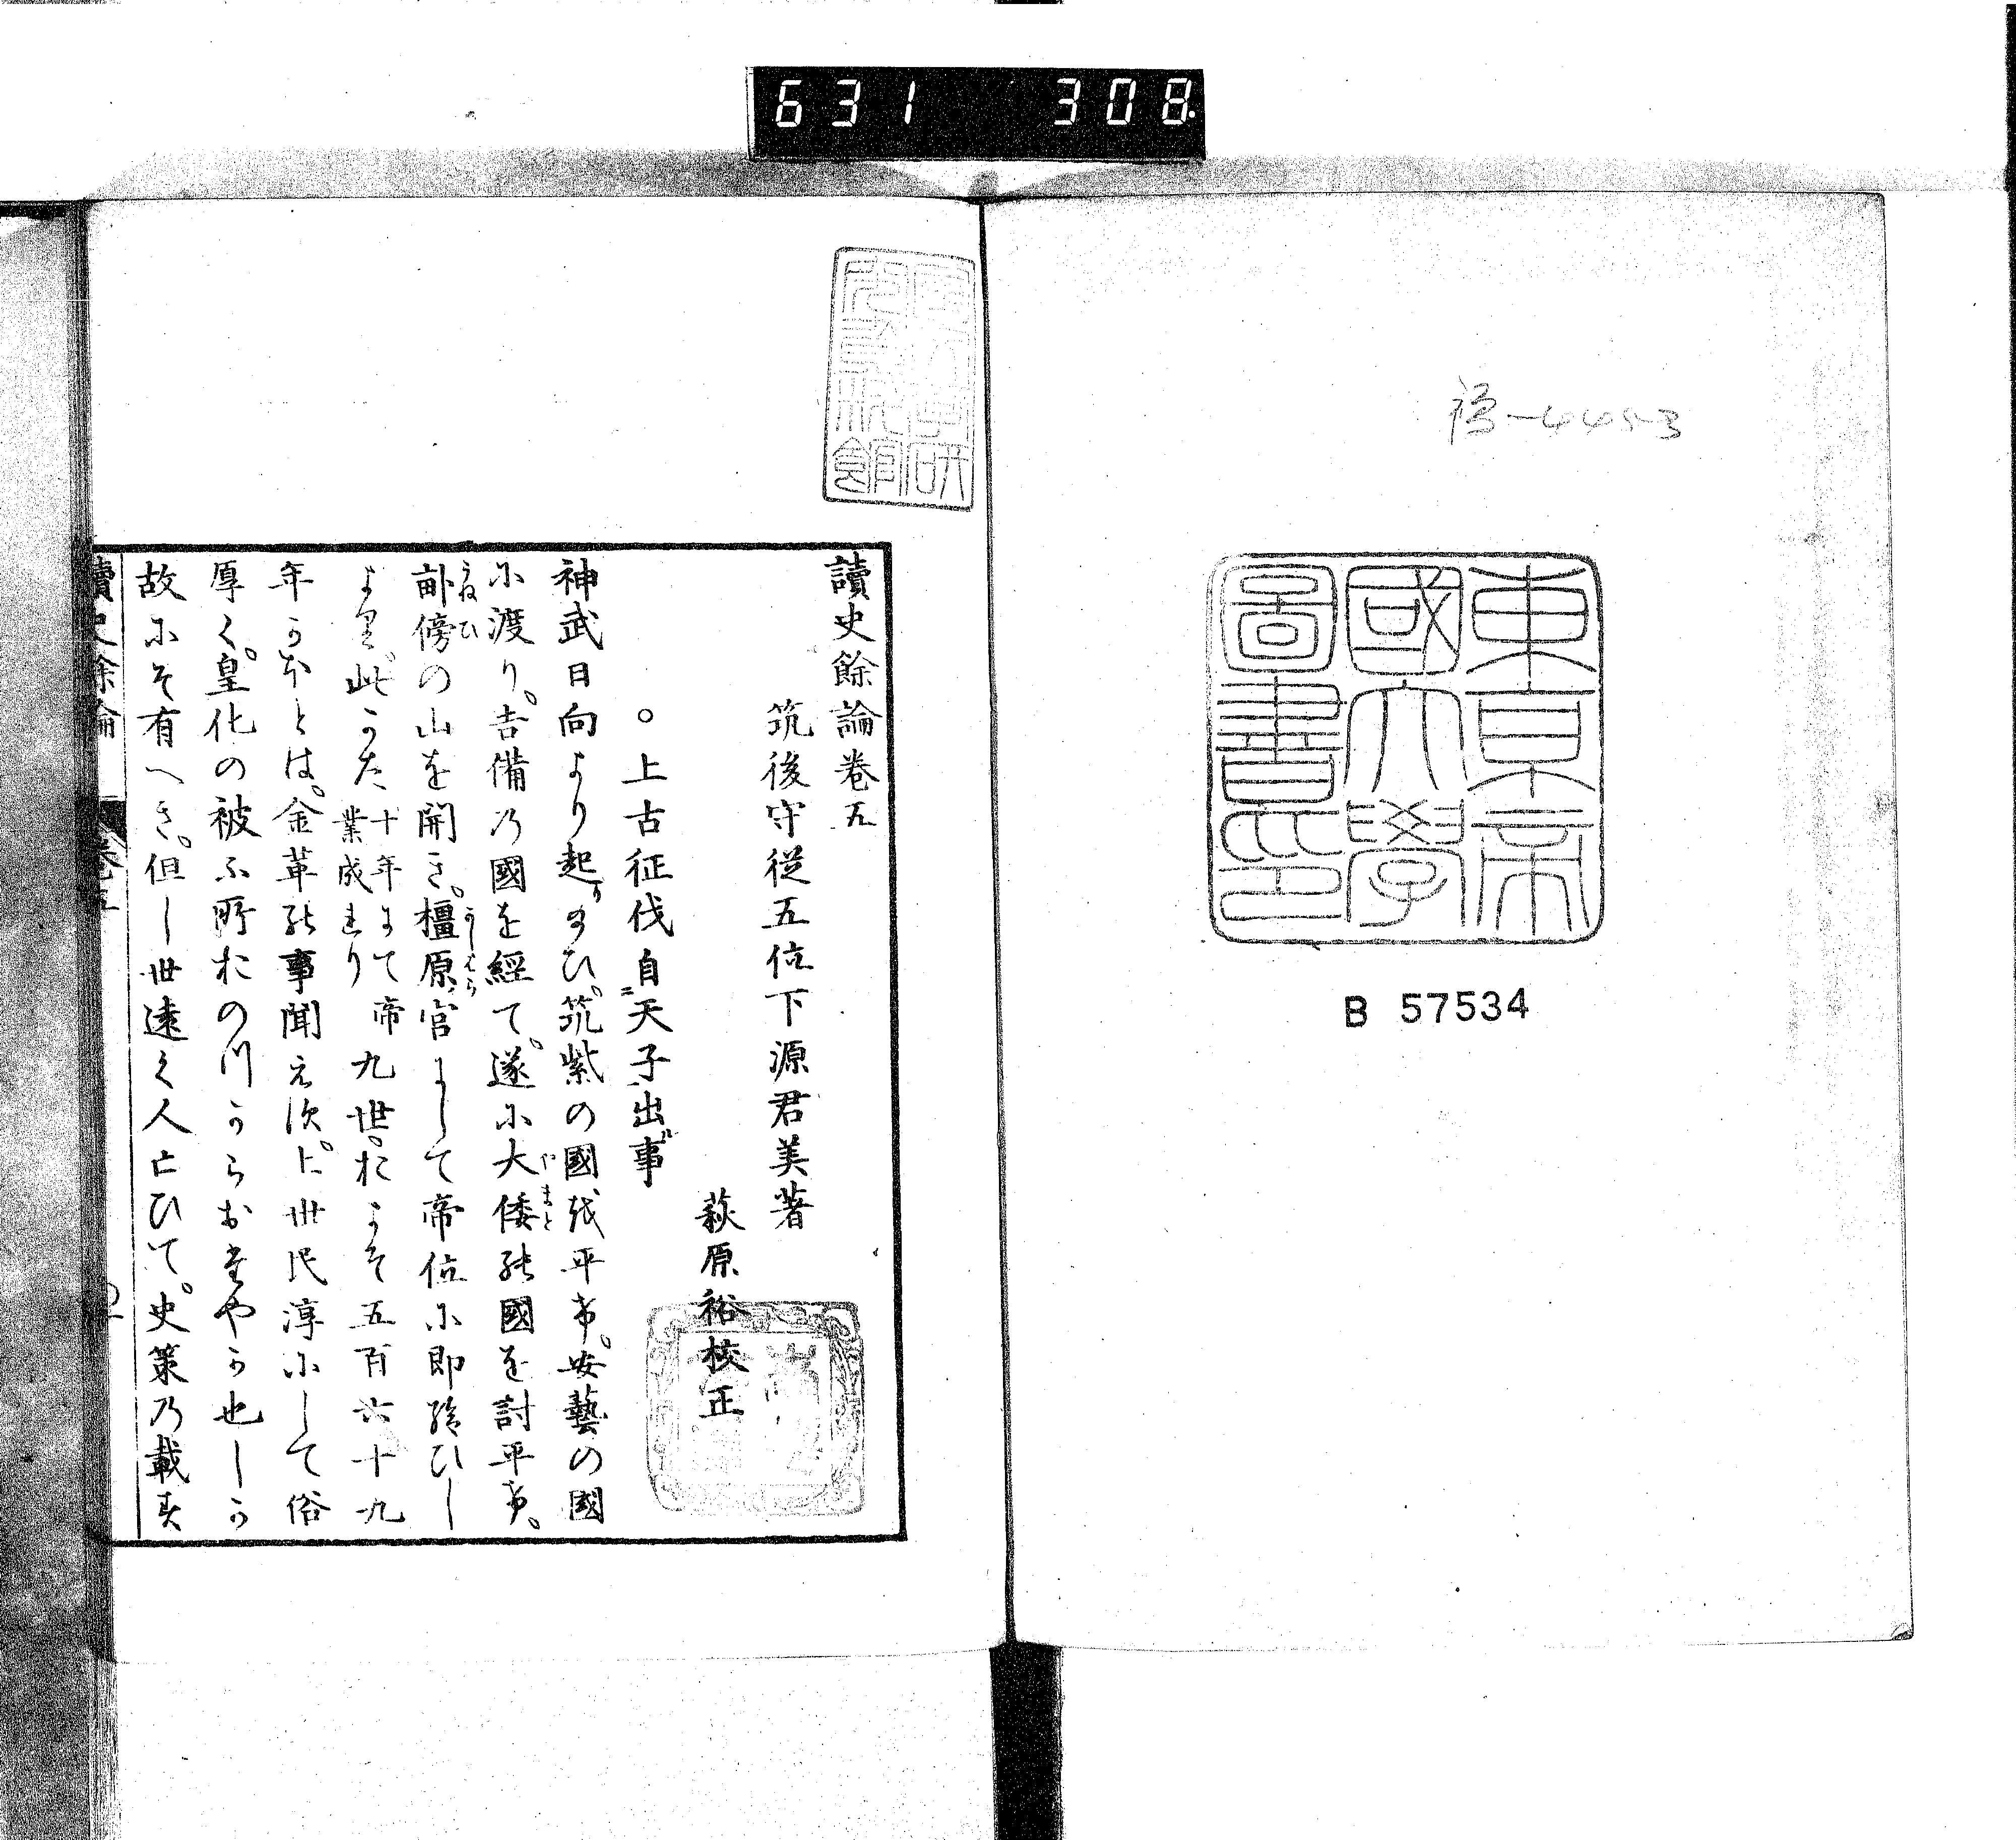 631 308
東京帝
國大學
圖書印
B 57534
讀史餘論巻五
筑後守從五位下源君美著
萩原裕校正
○上古征伐自天子出事
神武日向より起り給ひ。筑紫の國を平け。安藝の國
に渡り。吉備乃國を經て。遂に大倭の國を討平け。
やまと
畝傍の山を開き。橿原宮にして帝位に即給ひし
うねひ かしはら
より此かた十年にて帝業成れり九世。およそ五百六十九
年かほとは。金革の事聞え須。上世民淳にして俗
厚く。皇化の被ふ所おのつからおたやか也しか
故にそ有へき。但し世遠く人亡ひて。史策乃載す
讀史餘論 巻五